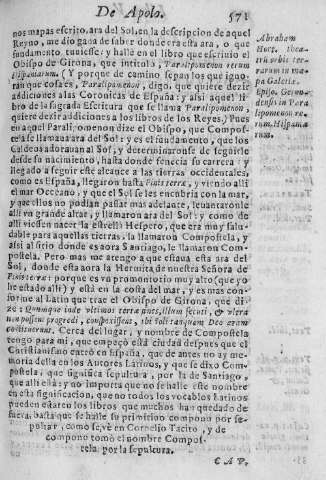 De Apolo. 571
nos mapas escrito, ara del Sol, en la descripcion de aquel
Reyno, me dio gana de saber donde era esta ara, o que
fundamento tuviesse; y halle en el libro que escrivio el
Obispo de Girona, que intitula, Paralipomenon rerum
Hispanarum. (Y porque de camino sepan los que igno-
ran que cosa es, Paralipomenon, digo, que quiere dezir
addiciones a las Coronicas de España; y assi aquel li-
bro de la sagrada Escritura que se llama Paralipomenon,
quiere dezir addiciones a los libros de los Reyes.) Pues
en aquel Paralipomenon dize el Obispo, que Compos-
tela se llamava ara del Sol: y es el fundamento, que los
Caldeos adoravan al Sol, y determinaronse de seguirlo
desde su nacimiento, hasta donde fenecia su carrera: y
llegado a seguir este alcance a las tierras occidentales,
como es España, llegaron hasta Finis terræ, y viendo alli
el mar Occeano, y que el Sol se les encubria con la mar,
y que ellos no podian passar mas adelante, levantaronle
alli vn grande altar, y llamaron ara del Sol: y como de
alli viessen nacer la estrella Hespero, que era muy salu-
dable para aquellas tierras, la llamaron Compostela, y
assi al sitio donde es aora Santiago, le llamaron Com-
postela. Pero mas me atengo a que estava esta ara del
Sol, donde esta aora la Hermita de nuestra Señora de
Finis terræ: porque es vn promontorio muy alto (que yo
he estado alli) y està en la costa del mar, y es mas con-
forme al Latin que trae el Obispo de Girona, que di-
ze: Quumque inde vltimos terræ fines, illum secuti, & vltra
non possent progredi, conspexissent, ibi soli tanquam Deo aram
construxerunt. Cerca del lugar, y nombre de Compostela
tengo para mi, que empeçò esta ciudad despues que el
Christianismo entrò en España, que de antes no ay me-
moria della en los Autores Latinos, y que se dixo Com-
postela, que significa sepultura, por la de Santiago,
que alli està: y no importa que no se halle este nombre
en esta significacion, que no todos los vocablos Latinos
pueden estar en los libros que muchos han quedado de
fuera, basta que se halle su primitivo compono por se-
pultar, como se vè en Cornelio Tacito, y de
compono tomò el nombre Compos-
tela, por la sepultura.
CAP.
Abraham
Hort. thea-
tri orbis ter-
rarum in ma
pa Galeciæ.
Episo. Gerun-
densis in Para
lipomenon re-
rum Hispana
rum.